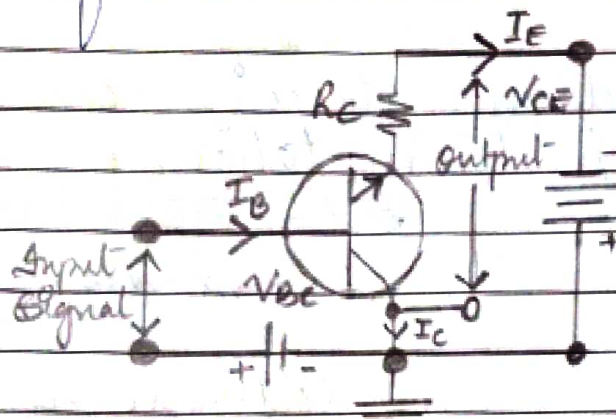 I_E
R_C
V_CE
output
-
I_B
+
Input
Signal
V_BC
I_C
+ -